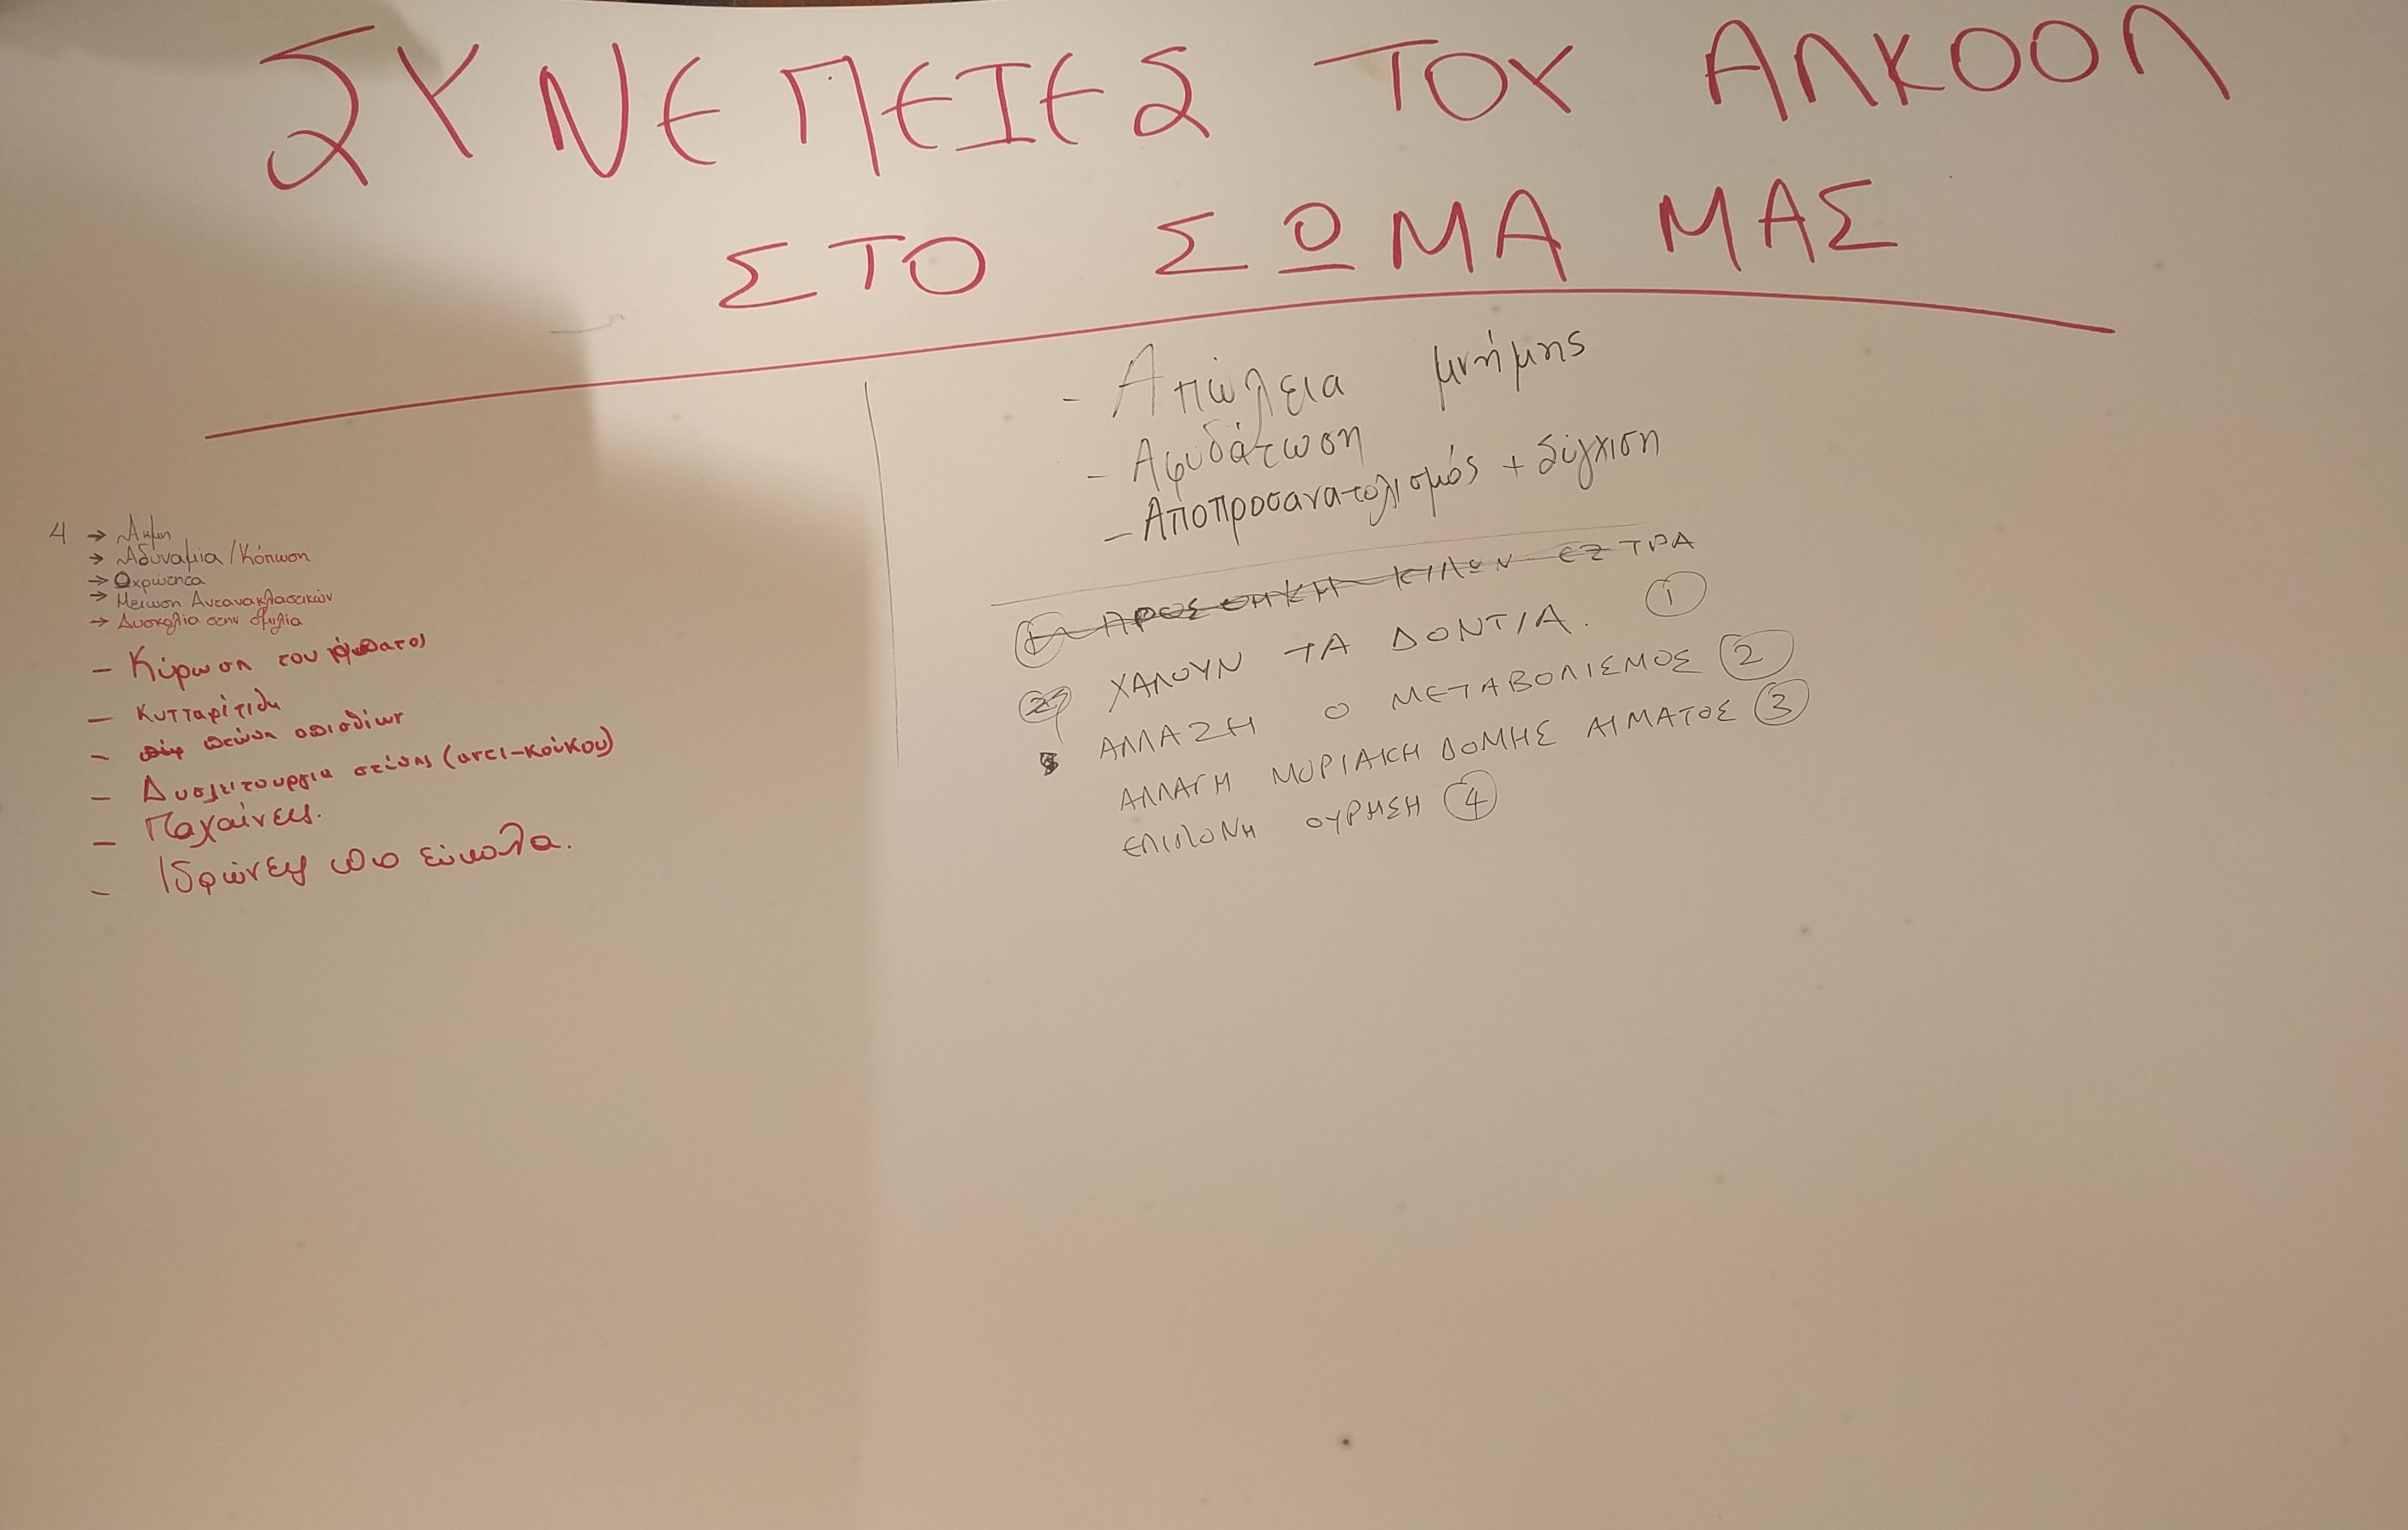 ΣΥΝΕΠΕΙΕΣ ΤΟΥ ΑΛΚΟΟΛ
ΣΤΟ ΣΩΜΑ ΜΑΣ
4 → Ακμη
→ Αδυναμία / Κόπωση
→ Ωχρώτητα
→ Μειωση Αντανακλαστικών
→ Δυσκολία στην ομιλία
- Κύρωση του ήπατος
- Κυτταρίτιδα
- πτώση οπισθίων
- Δυσλειτουργια στύσης (αντι-κούκου)
- Παχαίνεις.
- Ιδρώνεις πιο εύκολα.
- Απώλεια μνήμης
- Αφυδάτωση
- Αποπροσανατολισμός + Σύγχιση
1 ΠΡΟΣΘΗΚΗ ΚΙΛΩΝ ΕΞΤΡΑ
2 ΧΑΛΟΥΝ ΤΑ ΔΟΝΤΙΑ. 1
ΑΛΛΑΖΗ Ο ΜΕΤΑΒΟΛΙΣΜΟΣ 2
ΑΛΛΑΓΗ ΜΟΡΙΑΚΗ ΔΟΜΗΣ ΑΙΜΑΤΟΣ 3
ΕΠΙΜΟΝΗ ΟΥΡΗΣΗ 4